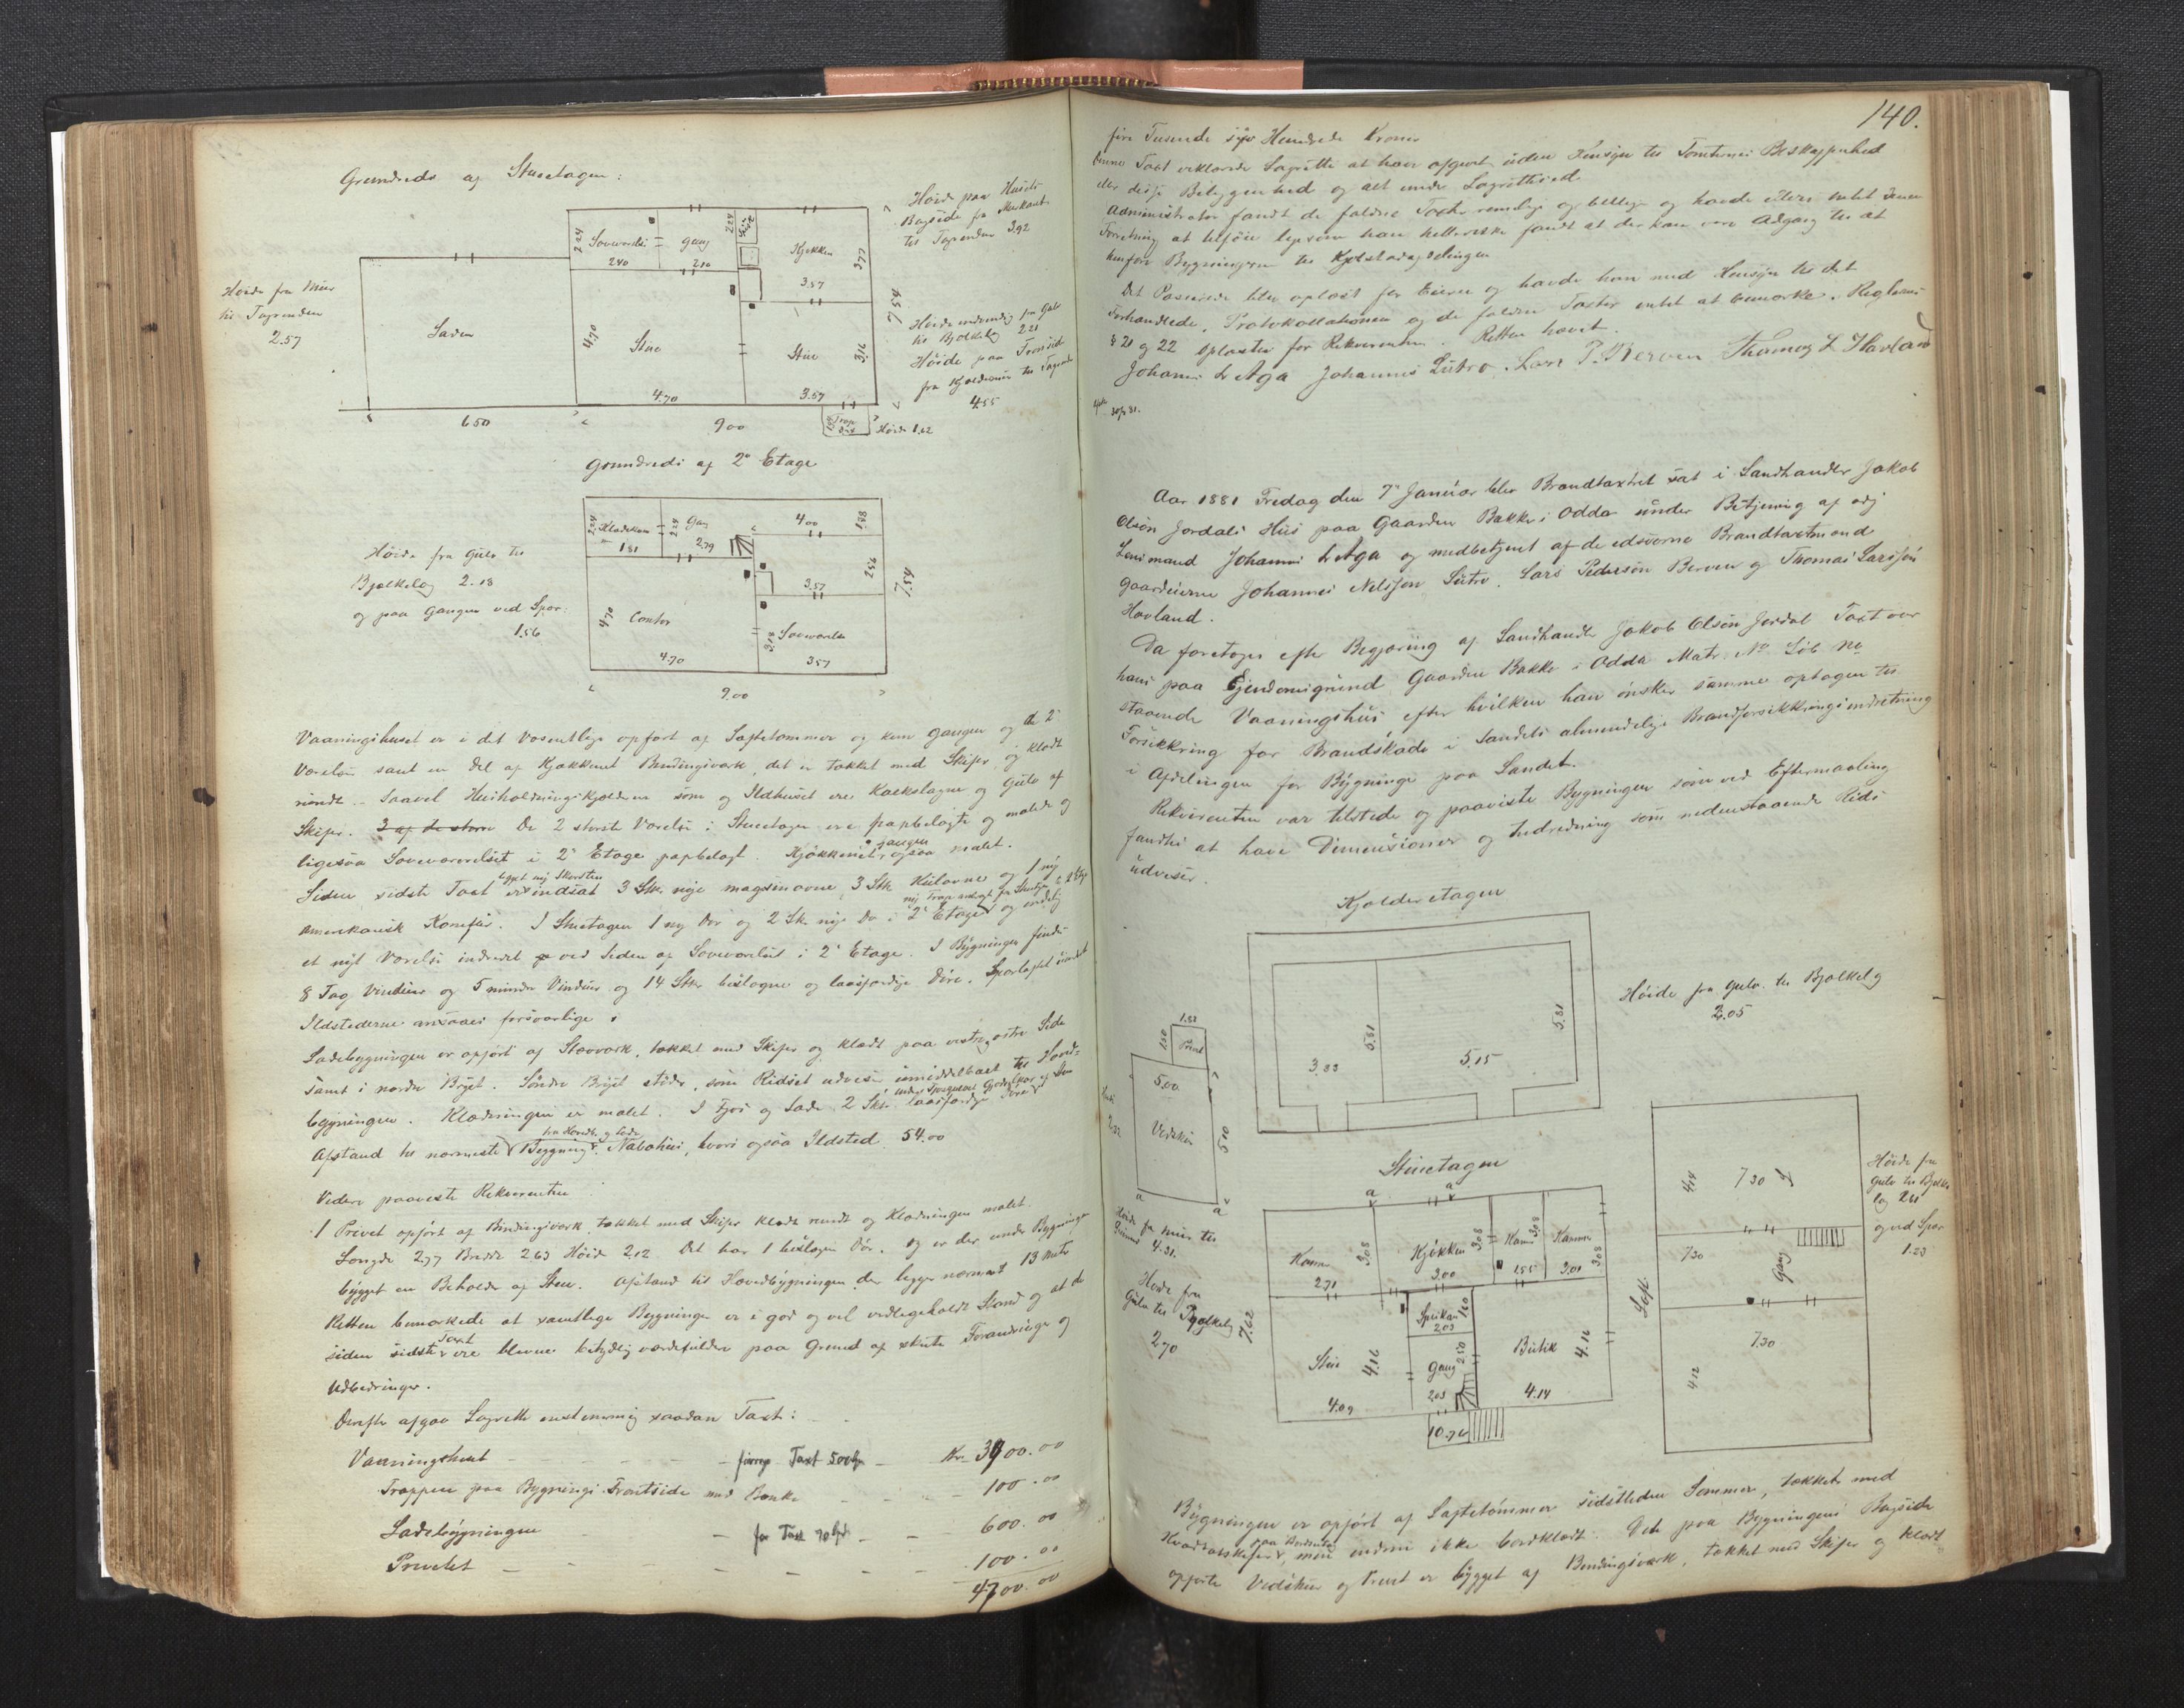 Grundrids af Stuetagen:
Høide paa Husets
Bagside fra Murkant
til Tagrenden 3.92
Høide fra Muur
til Tagrenden
2.57
Laden
Soveværelse
2.24
2.40
Gang
2.24
2.10
Kjøkken
3.77
3.57
Stue
4.70
4.70
Stue
3.16
3.57
7.54
Høide indvendig fra Gulv
til Bjælkelag 2.21
Høide paa Frontside
fra Kjældermur til Tagrende
4.55
6.50
9.00
Trap
Høide 1.62
Grundrids af 2en Etage
Høide fra Gulv til
Bjælkelag 2.18
og paa Gangen ved Spær:
1.56
Klædekam
2.24
1.81
Gang
2.24
2.79
4.00
1.88
2.56
3.57
7.54
Contor
4.70
4.70
Soveværelse
3.18
3.57
9.00
Vaaningshuset er i det Væsentlige opført af Laftetømmer og kun Gangen og de 2de
Værelser samt en Del af Kjøkkenet Bindingsværk, det er tækket med Skifer og klædt
rundt. Saavel Husholdningskjælderen som og Ildhuset ere Kalkslagne og Gulv af
Skifer. 3 af de større De 2 største Værelser i Stuetagen ere papbelagte og malede og
ligesaa Soveværelset i 2en Etage papbelagt. Kjøkkenet, Gangen ogsaa malet.
Siden sidste Taxt er bygt ny Skorsten indsat 3 Stk. nye magasinovne, 3 Stk Kulovne og 1 ny
amerikansk Komfur. I Stuetagen 1 ny Dør og 2 Stk nye Do i 2en Etage ny Trap anlagt fra Stuetagen til 2 Etage og endelig
et nyt Værelse indredet ved Siden af Soveværelset i 2en Etage. I Bygningen findes
8 Fag Vinduer og 5 mindre Vinduer og 14 Stkr beslagne og laasfærdige Døre. Sparlaftet uindredet
Ildstederne ansaaes forsvarlige.
Ladebygningen er opført af Stavværk, tækket med Skifer og klædt paa vestre, østre Side
samt i nordre Bryst. Søndre Bryst støder, som Ridset udviser umiddelbart til Hoved-
bygningen. Klædningen er malet. I Fjøs og Lade 2 Stkr. laasfærdige Døre
Afstand til nærmeste Bygning fra Hovedb. og Lade Nabohus, hvori ogsaa Ildsted 54.00
Videre paaviste Rekvirenten
1 Privet opført af Bindingsværk tækket med Skifer klædt rundt og Klædningen malet.
Længde 2.77 Bredde 2.63 Høide 2.12 Det har 1 beslagen Dør, og er der under Bygningen
bygget en Beholder af Steen. Afstand til Hovedbygningen der ligger nærmest 13 Meter
Retten bemærkede at samtlige Bygninger er i god og vel vedligeholdt Stand og at de
siden sidste Taxt ere blevne betydelig værdifuldere paa Grund af skete Forandringer og
Udbedringer.
Derefter afgav Lagrette enstemmig saadan Taxt:
Vaaningshuset - - - - førrige Taxt 500 Spd - Kr. 3900.00
Trappen paa Bygnings Frontside med Bænke - - - 100.00
Ladebygningen - før Taxt 70 Spd - - 600.00
Privetet - - - - - 100.00
4700.00
140.
fire Tusende syv Hundrede Kroner
Denne Taxt erklærede Lagrette at have afgivet uden Hensyn til Tomternes Beskaffenhed
eller disses Beliggenhed og alt under Lagrettesed.
Administrator fandt de faldne Taxter rimelige og billige og havde ellers intet denne
Forretning at tilføie ligesom han heller ikke fandt at der kan være Adgang til at
henføre Bygningerne til Kjøbstadafdelingen
Det Passerede blev oplæst for Eieren og havde han med Hensyn til det
Forhandlede, Protokollationen og de faldne Taxter intet at bemærke. Reglernes
§ 20 og 22 oplæstes for Rekvirenten. Retten hævet.
Johannes L Aga Johannes Lutro. Lars P. Berven Thomas L Havland
Aar 1881 Fredag den 7de Januar blev Brandtaxtret sat i Landhandler Jakob
Olsøn Jordals Hus paa Gaarden Bakke i Odda under Betjening af edsv
Lensmand Johannes L Aga og medbetjent af de edsvorne Brandtaxtmænd
Gaardeierne Johannes Nelssøn Lutro, Lars Pedersøn Berven og Thomas Larssøn
Havland.
Da foretoges efter Begjæring af Landhandler Jakob Olsøn Jordal Taxt over
hans paa Eiendomsgrund Gaarden Bakke i Odda Matr. No Løb No
staaende Vaaningshus efter hvilken han ønsker samme optagen til
Forsikkring for Brandskade i Landets almindelige Brandforsikkringsindretning
i Afdelingen for Bygninger paa Landet.
Rekvirenten var tilstede og paaviste Bygningen som ved Eftermaaling
fandtes at have Dimensioner og Indredning som nedenstaaende Rids
udviser.
Kjælderetagen
3.83
5.81
5.15
5.81
Høide fra Gulv til Bjælkelag
2.05
1.50
1.88
Privet
5.00
Vedskur
5.10
Høide
Høide fra Mur til
4.31.
Høide fra
Gulv til Bjælkelag
2.70
Stuetagen
Kammer
2.71
3.08
Kjøkken
3.00
3.08
Kam
1.55
3.08
Kammer
3.00
3.08
Spiskam
2.03
1.60
Stue
4.16
4.09
Gang
2.50
2.03
Butik
4.16
4.14
7.62
10.76
Loft.
4.14
7.30
7.30
Gang
7.30
4.12
Høide fra
Gulv til Bjælke
lag 2.61
og ved Spær
1.23
Bygningen er opført af Laftetømmer sidstleden Sommer, tækket med
Hvadratskifer paa Bordtag, men endnu ikke bordklædt. Det paa Bygningens Bagside
opførte Vedskur og Privet er bygget af Bindingsværk, tækket med Skifer og klædt